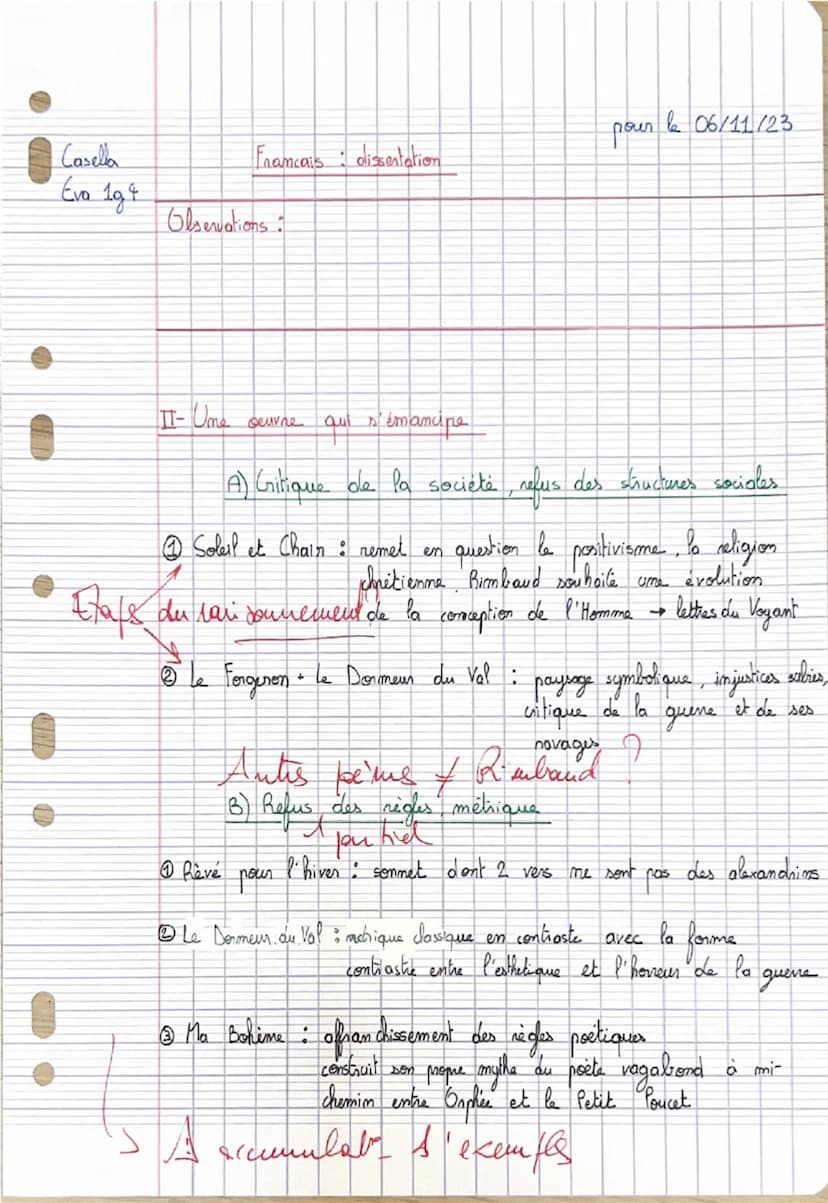 pour le 06/11/23
Casella
Eva 1g4
Francais : dissertation
Observations :
II- Une oeuvre qui s'émancipe
A) Critique de la société, refus des structures sociales
① Soleil et Chair : remet en question le positivisme, la religion
chrétienne. Rimbaud souhaite une évolution
de la conception de l'Homme → lettres du Voyant
Etapes du raisonnement
② Le Forgeron + Le Dormeur du Val : paysage symbolique, injustices subies,
critique de la guerre et de ses
ravages
Autres poèmes ≠ Rimbaud ?
B) Refus des règles métrique
↑ partiel
① Rêvé pour l'hiver : sonnet dont 2 vers ne sont pas des alexandrins
② Le Dormeur du Val : métrique classique en contraste avec la forme
contraste entre l'esthétique et l'horreur de la guerre
③ Ma Bohème : affranchissement des règles poétiques
construit son propre mythe du poète vagabond à mi-
chemin entre Orphée et le Petit Poucet
⚠ accumulat° d'exemples